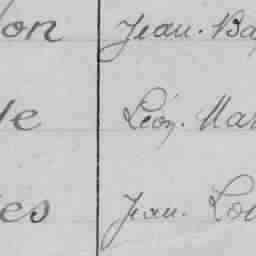 on Jean. Ba
le Léon. Mar
es Jean. Lou